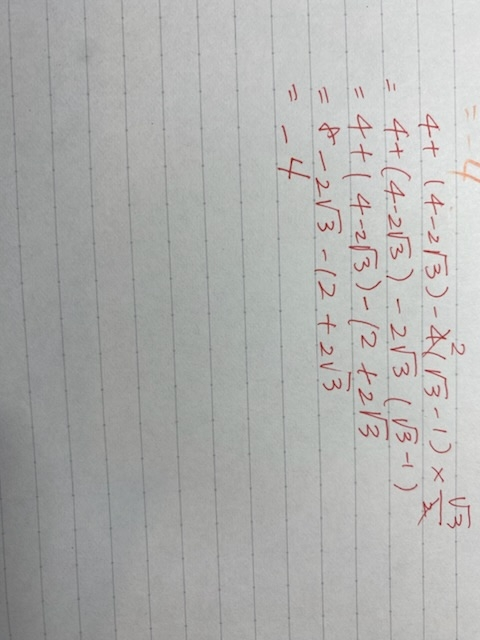 = -4
4 + (4-2√3) - 4 2 (√3-1) × √3/2
= 4 + (4-2√3) - 2√3 (√3-1)
= 4 + (4-2√3) - 12 + 2√3
= 8 - 2√3 - 12 + 2√3
= -4